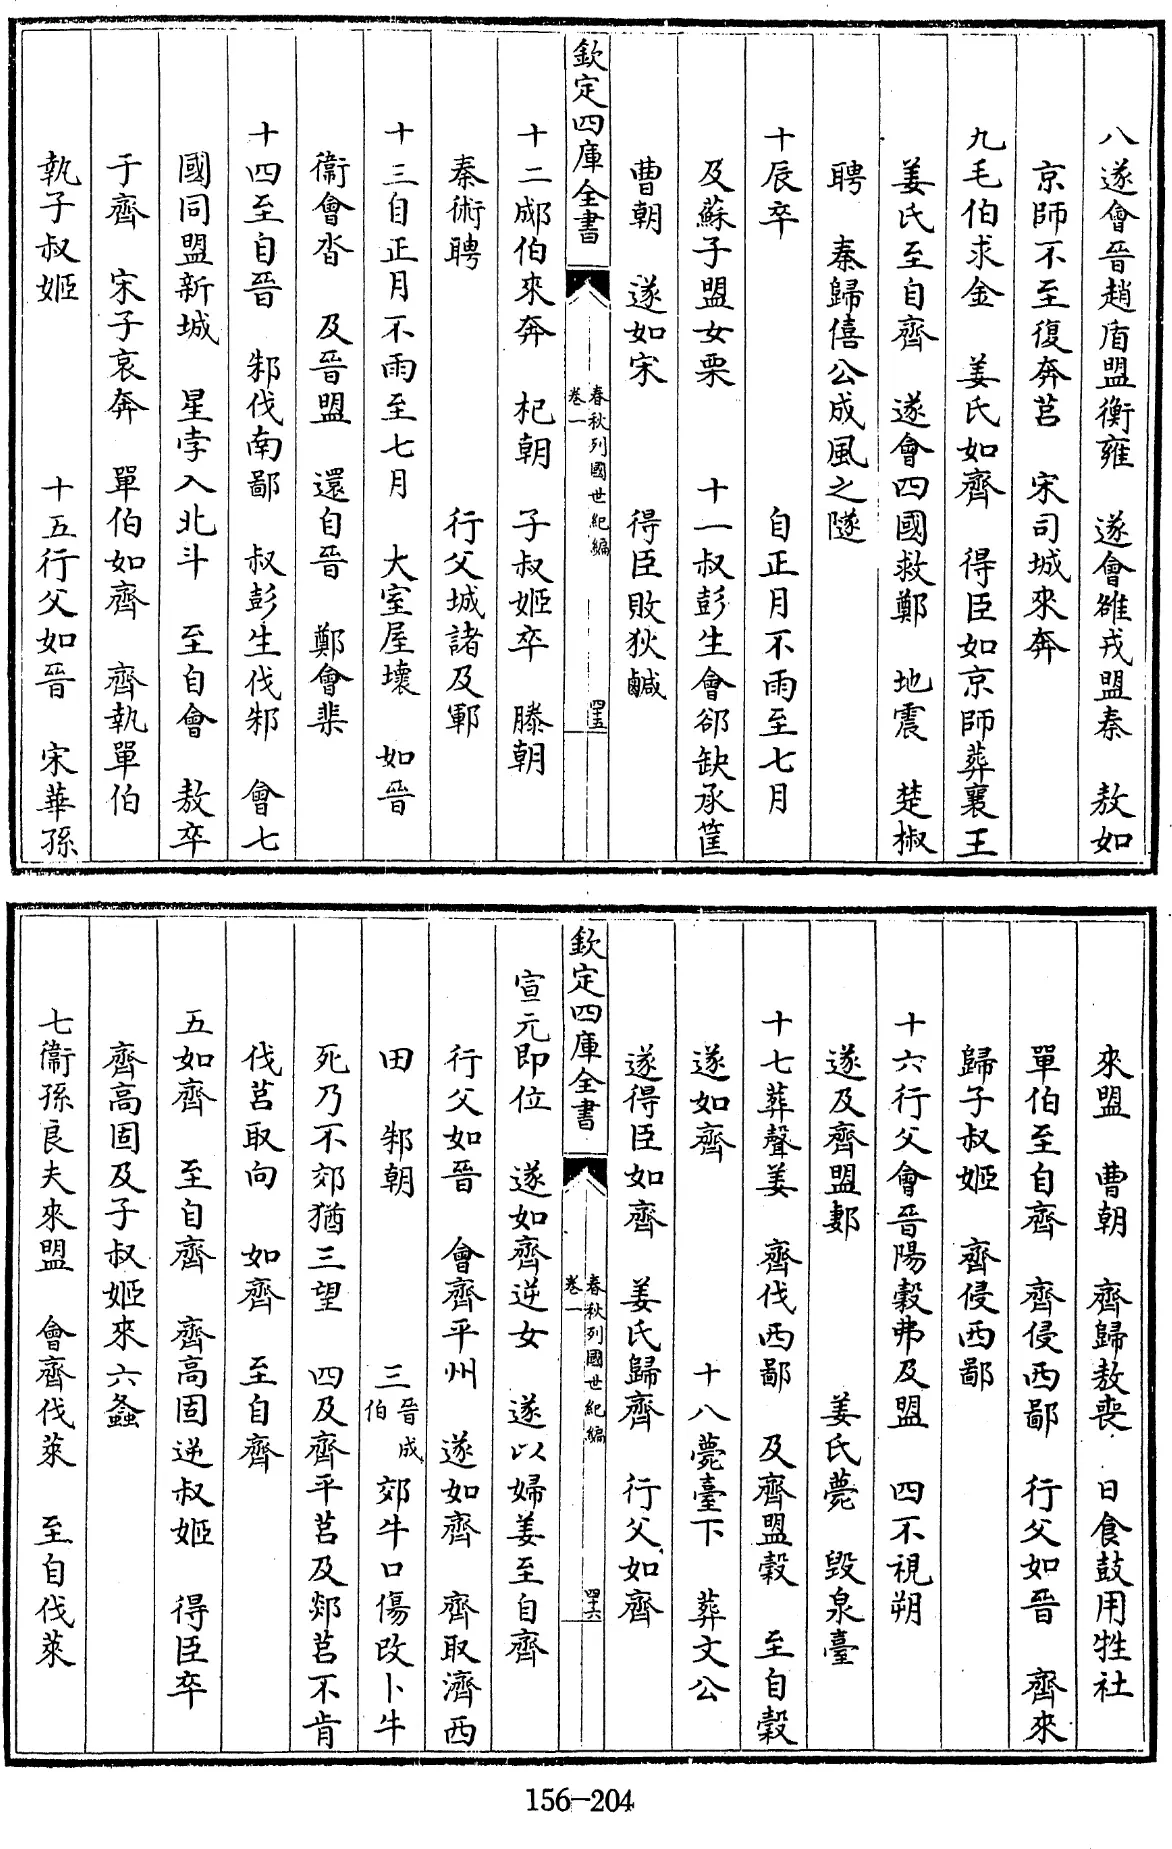 八遂會晉趙盾盟衡雍　遂會雒戎盟秦　敖如
京師不至復奔莒　宋司城來奔
九毛伯求金　姜氏如齊　得臣如京師葬襄王
姜氏至自齊　遂會四國救鄭　地震　楚椒
聘　秦歸僖公成風之隧
十辰卒　自正月不雨至七月
及蘇子盟女栗　十一叔彭生會郤缺承筐
曹朝　遂如宋　得臣敗狄鹹
欽定四庫全書　春秋列國世紀編
卷一　四十五
十二郕伯來奔　杞朝　子叔姬卒　滕朝
秦術聘　行父城諸及鄆
十三自正月不雨至七月　大室屋壞　如晉
衞會沓　及晉盟　還自晉　鄭會棐
十四至自晉　邾伐南鄙　叔彭生伐邾　會七
國同盟新城　星孛入北斗　至自會　敖卒
于齊　宋子哀奔　單伯如齊　齊執單伯
執子叔姬　十五行父如晉　宋華孫
來盟　曹朝　齊歸敖喪　日食鼓用牲社
單伯至自齊　齊侵西鄙　行父如晉　齊來
歸子叔姬　齊侵西鄙
十六行父會晉陽穀弗及盟　四不視朔
遂及齊盟郪　姜氏薨　毀泉臺
十七葬聲姜　齊伐西鄙　及齊盟穀　至自穀
遂如齊　十八薨臺下　葬文公
遂得臣如齊　姜氏歸齊　行父如齊
欽定四庫全書　春秋列國世紀編
卷一　四十六
宣元即位　遂如齊逆女　遂以婦姜至自齊
行父如晉　會齊平州　遂如齊　齊取濟西
田　邾朝　三晉成伯郊牛口傷改卜牛
死乃不郊猶三望　四及齊平莒及郯莒不肯
伐莒取向　如齊　至自齊
五如齊　至自齊　齊高固逆叔姬　得臣卒
齊高固及子叔姬來六螽
七衞孫良夫來盟　會齊伐萊　至自伐萊
156-204